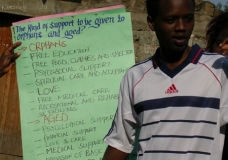 The Kind of support to be given to
orphans and aged?
ORPHANS
FREE EDUCATION
FREE FOOD, CLOTHES AND SHELTER
PSYCHOSOCIAL SUPPORT
SPIRITUAL CARE AND
LOVE
FREE MEDICAL CARE
RECREATIONAL AND
AGED
PSYCHOSOCIAL SUPPORT
FINANCIAL SUPPORT
LOVE & CARE
MEDICAL SUPPORT
OF BASIC